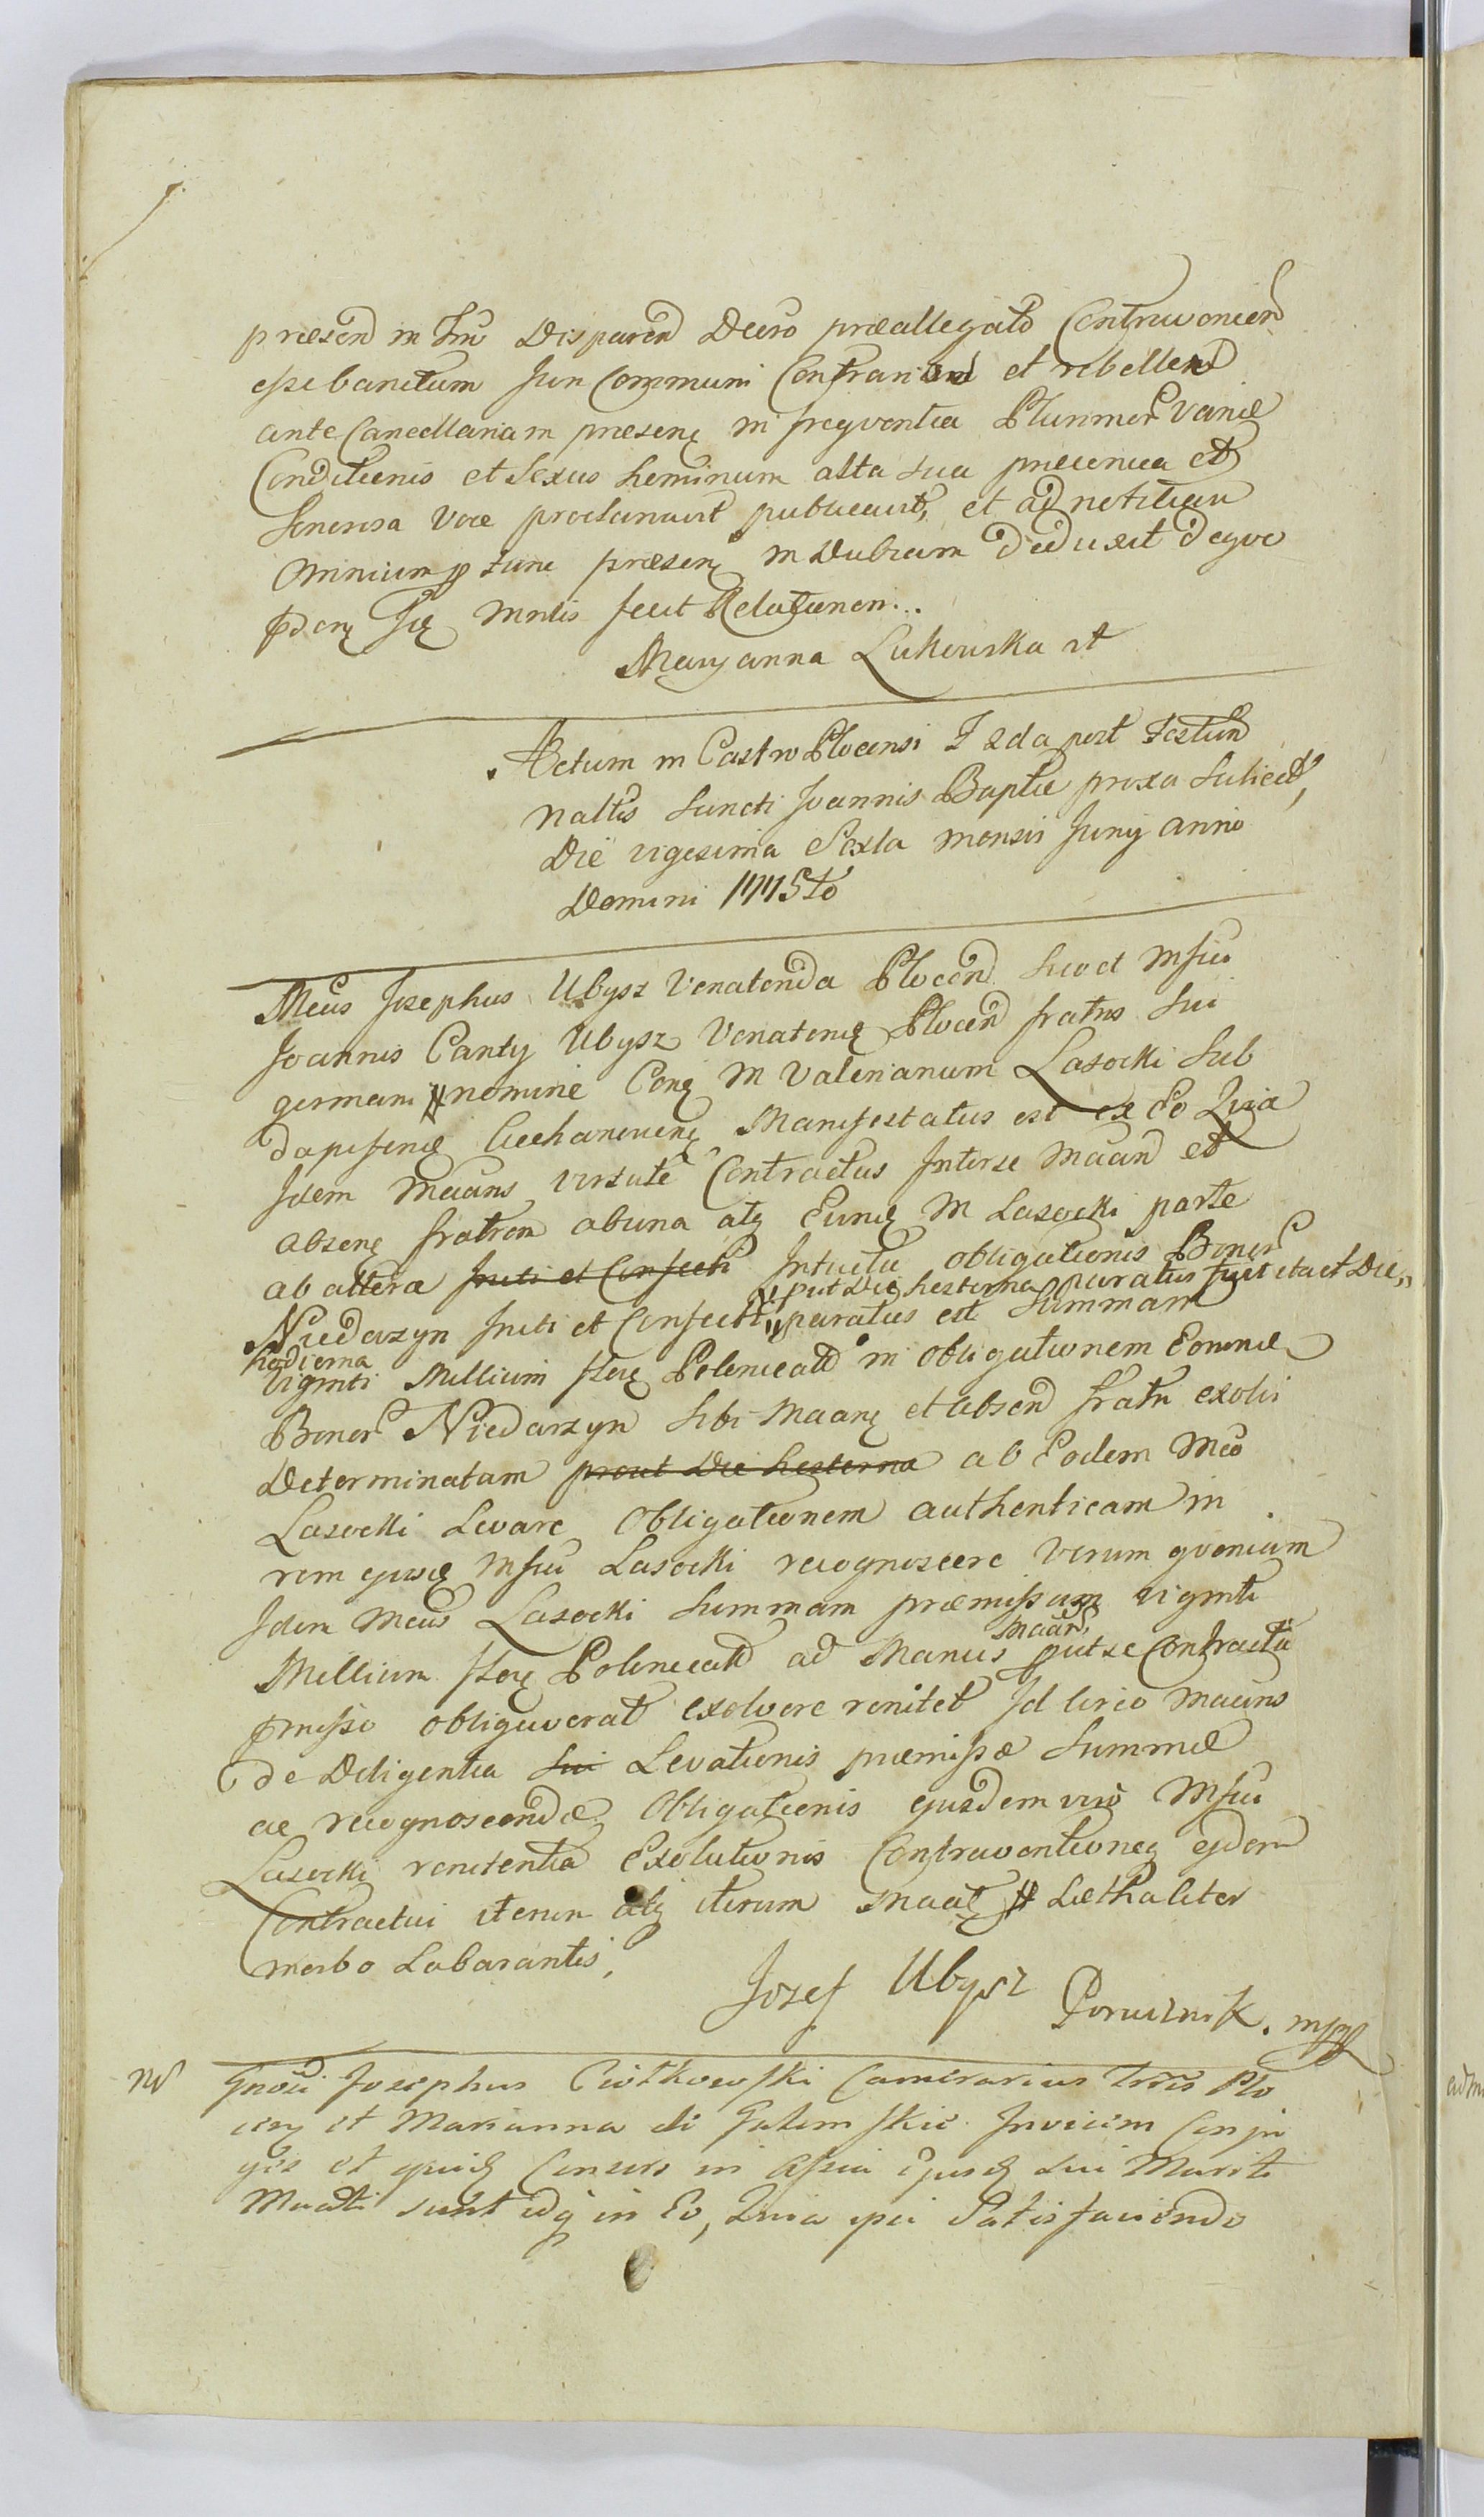 præsen in Tru Disparen Decro præallegato Contravenien
esse banitum Juri Communi Contrarium et rebellem
ante Cancellariam præsen in freqventia Plurimor Variæ
Conditionis et Sexus hominum alta sua præconica et
Sonorosa voce proclamavit publicavit, et ad notitiam
Omnium pro tunc præsen in Dubiam deduxit deqve
Maryanna Lukowska
Actum in Castro Plocensi F 2da post Festum
Naltis Sancti Joannis Baptæ proxa Scilicet,
Die vigesima Sexta mensis Juny Anno
Domini 1775to
Mcus Josephus Ubysz Venatorida Plocen Suo et Msfici
Joannis Canty Ubysz Venatoris Plocen fratris Sui
germani nomine Corą M Valerianum Lasocki Sub
dapiferum Ciechanovien Manifestatus est ex Eo Qvia
Idem Maans virtute Contractus Interse Maan et
absenę fratrem abuna atq Eunđ M Lasocki parte
ab altera Initi et Confecti Intuitu obligationis Bonor
put Die hesterna paratus fuit ita et Die
Niedarzyn Initi et Confecti paratus est Summam
hodierna
Viginti Millium flor Polonical in obligationem Eorund
Bonor Niedarzyn Sibi Maanę et absen fratri exolvi
Determinatam prout Die hesterna ab Eodem Mco
Lasocki Levare Obligationem authenticam in
rem ejusđ Msfici Lasocki recognoscere Verum qvoniam
Idem Mcus Lasocki Summam præmissam viginti
Maans
Millium flor Polonical ad Manus put se Contractu
pmisso obligaverat exolvere renitet Id circo Maans
de Diligentia Sui Levationis præmissæ Summæ
ac recognoscendæ Obligationis ejusdem vero Msfici
Lasocki renitentia Exolutionis Contraventioneq ejdem
Contractui iterum atq iterum Maatę Læthaliter
morbo Laborantis,
Jozef Ubysz Porucznik. mpp
NB Gnosi Josephus Ciotkowski Camerarius Trris Plo
cen et Marianna de Galemskie Invicem Conju
ges et quidę Consors in Assia ejusđ Sui Mariti
Maati sunt idq in Eo, Quia ipsi Satisfaciendo